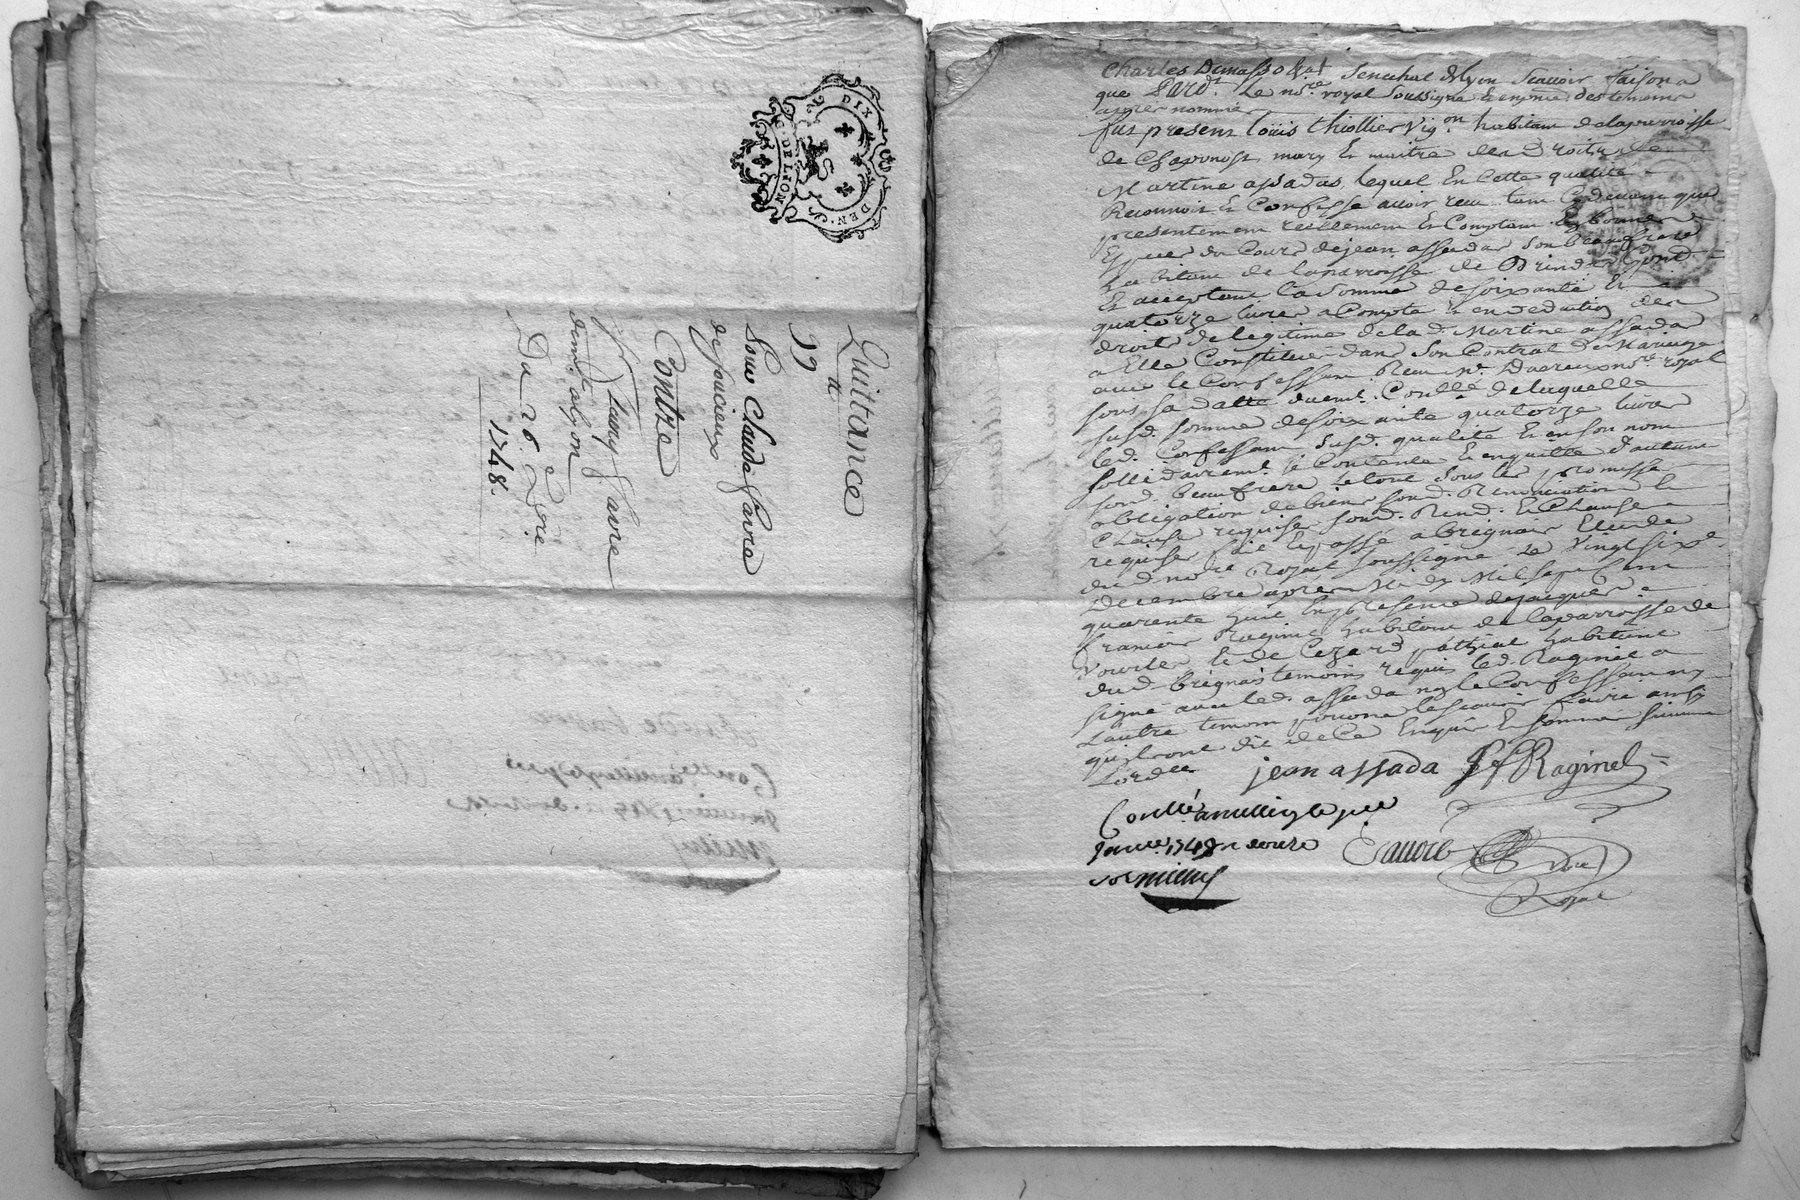 DIX DEN.
G. DE LION
Quittance
77 tt
Pour Claude Favre
de foucieux
Contre
Fleury Favre
demt. a lyon
Du 26. Xbre
1748.
Charles Demasso Senechal de lyon Scavoir faisons
que Pard. Le nore. royal Soussigné Et en pnce. des temoins
apres nommés
fut present Loüis thiollier Vigon. habitant de la parroisse
de Chaponost mary Et maitre des Droits de
Martine assadas lequel En Cette qualité
Reconnoit Et Confesse avoir receu tant Cy devant que
presentement reellement Et Comptant En bonnes
Especes du Cours de jean assada Son beaufrere
habitant de la parroisse de Brindas
Et acceptant la Somme de soixante Et
quatorze livres a Compte Et en deduction des
droits de legitime de la de. Martine assada
a Elle Constitués dans Son Contrat de Mariage
avec le Confessant Receu Me. nore. royal
sous sa datte duemt. Conllé. de laquelle
susd. somme de soixante quatorze livres
led. Confessant susd. qualité Et en son nom
sollidairemt. se Contente Et en quitte
sond. beaufrere le tout sous les promesses
obligation de biens soumd. Renonciation Et
Clauses requises
requises fait Et passé a brignais Etude
du d. nore. Royal soussigné Le Vingt Sixe.
Decembre apres Midy Mil Sept Cent
quarente huit En presence de jacques
francois Raginel habitant de la parroisse de
Vourles Et de Cezard habitant
dud. brignais temoins requis led. Raginel a
signé avec led. assada non le Confessant ny
l'autre temoin pour ne le scavoir faire ainsy
qu'ils ont dit de Ce Enquis Et sommés suivant
L'ordce.
jean assada Jf Raginel
Conllé a millery le pr.
janvr. 1749 R douze
sols
Royal